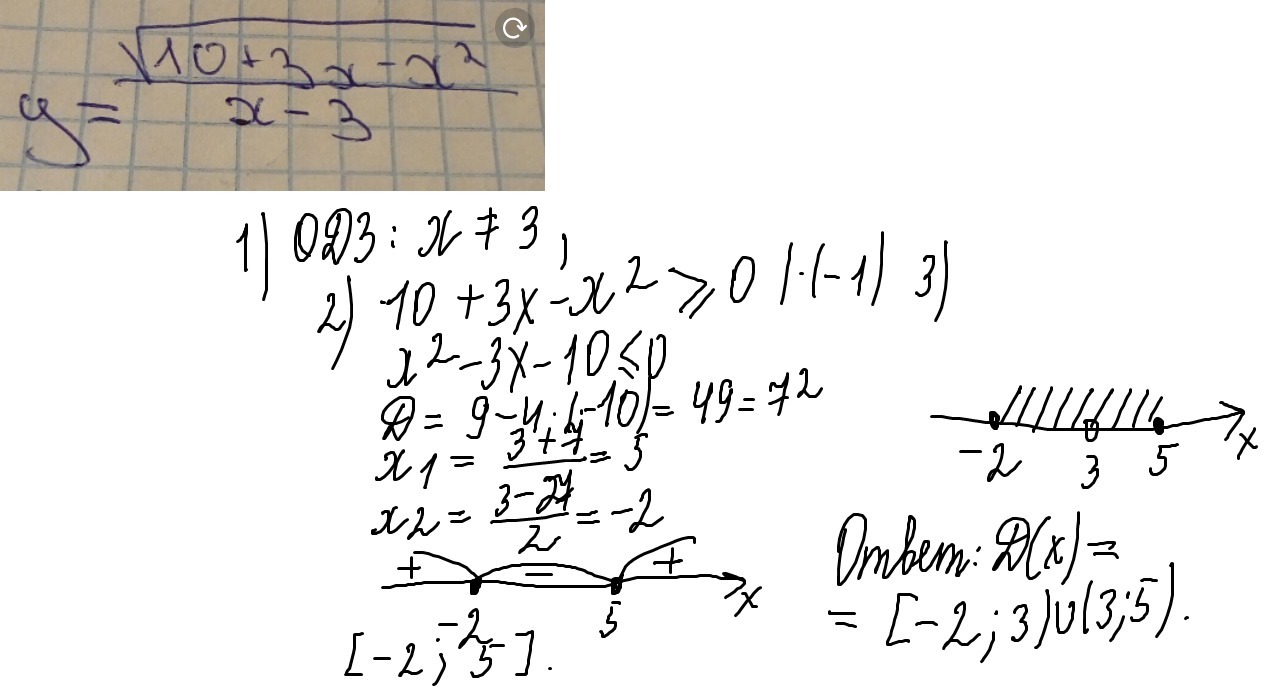 y = √(10 + 3x - x²) / (x - 3)
1) ОДЗ: x ≠ 3,
2) 10 + 3x - x² ⩾ 0 |·(-1) 3)
x² - 3x - 10 ⩽ 0
D = 9 - 4·(-10) = 49 = 7²
x1 = (3+7)/2 = 5
x2 = (3-7)/2 = -2
+ - + x
-2 5
[-2; 5].
-2 3 5 x
Ответ: D(x) =
= [-2; 3)∪(3; 5).